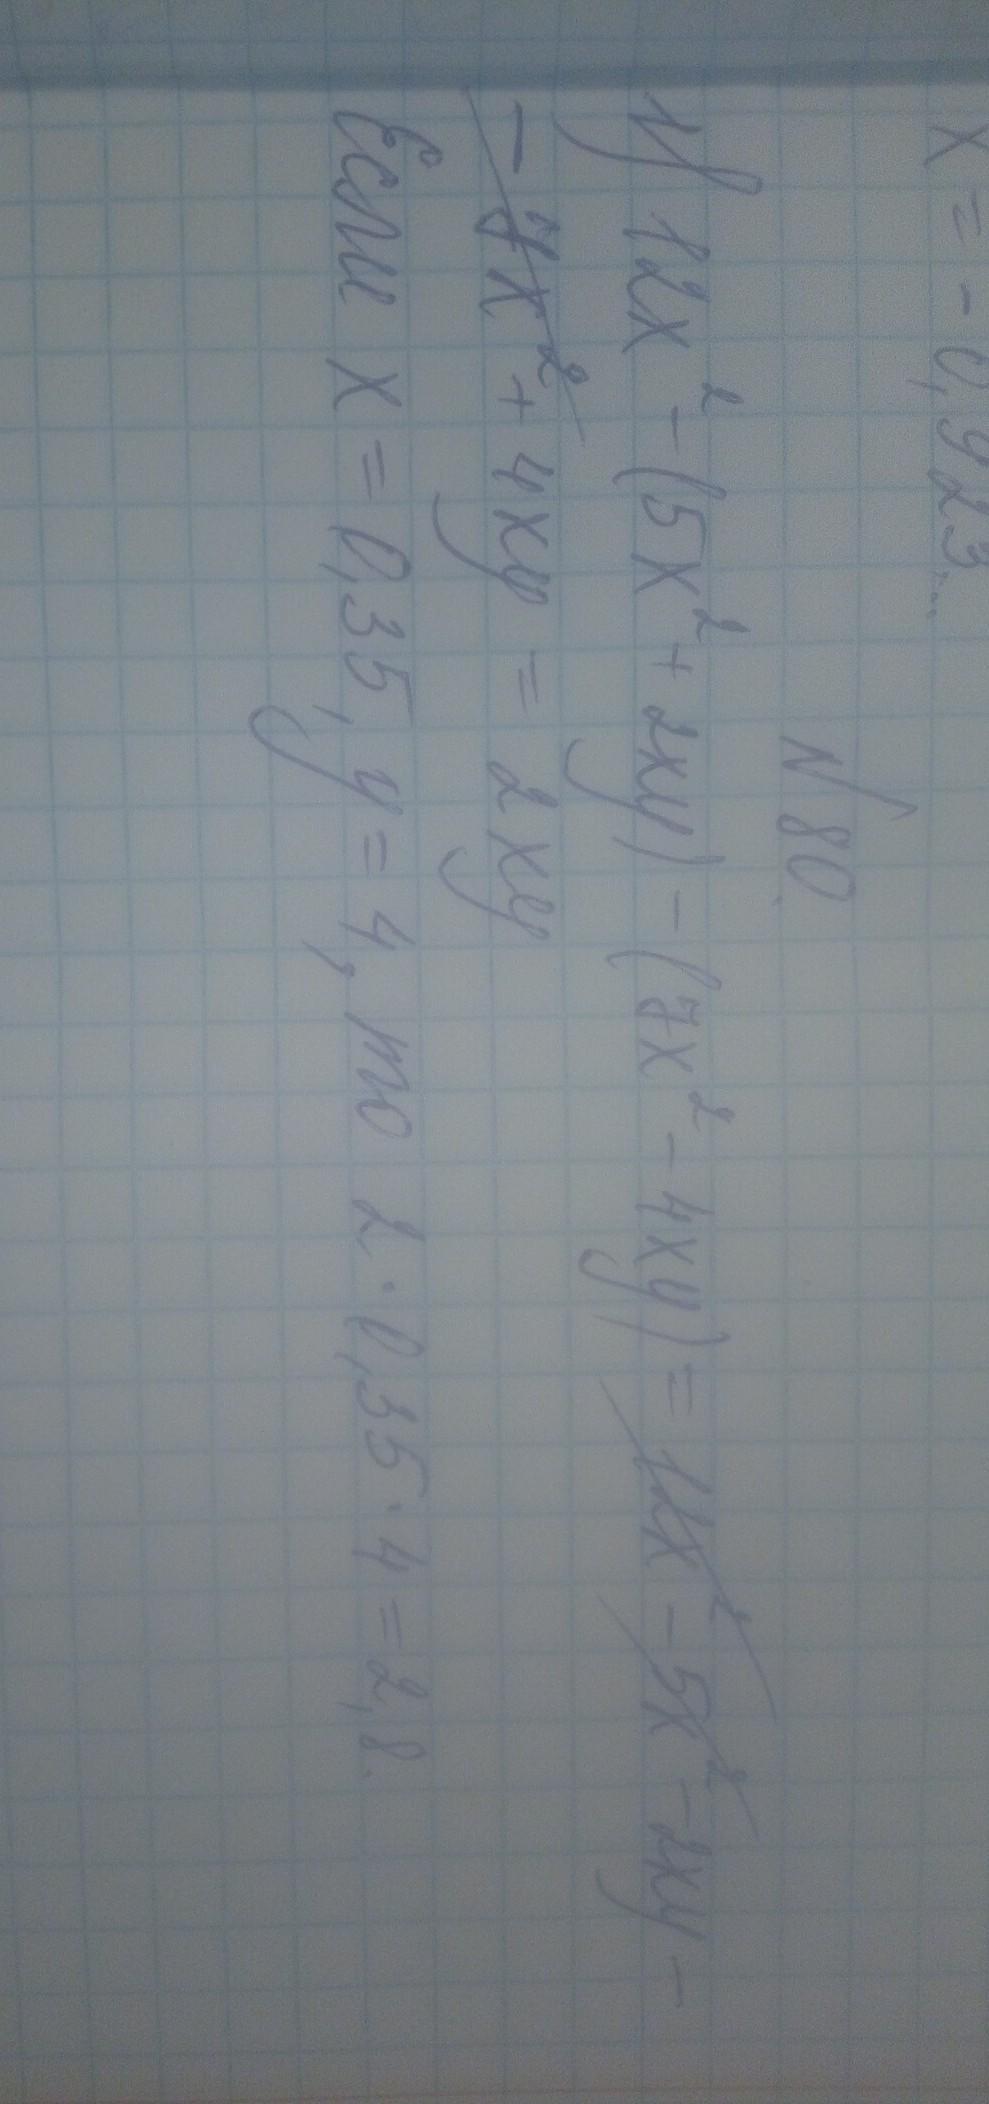 x = - 0,923...
N 80.
1) 12x² - (5x² + 2xy) - (7x² - 4xy) = 12x² - 5x² - 2xy -
- 7x² + 4xy = 2xy
Если x = 0,35, y = 4, то 2 · 0,35 · 4 = 2,8.